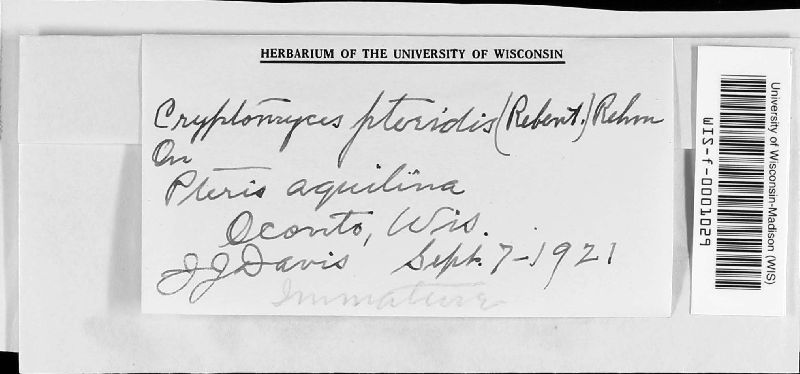 HERBARIUM OF THE UNIVERSITY OF WISCONSIN
Cryptomyces pteridis (Rebent.) Rehm
On
Pteris aquilina
Oconto, Wis.
JJ Davis Sept. 7-1921
Immature
University of Wisconsin-Madison (WIS)
WIS-f-0001029